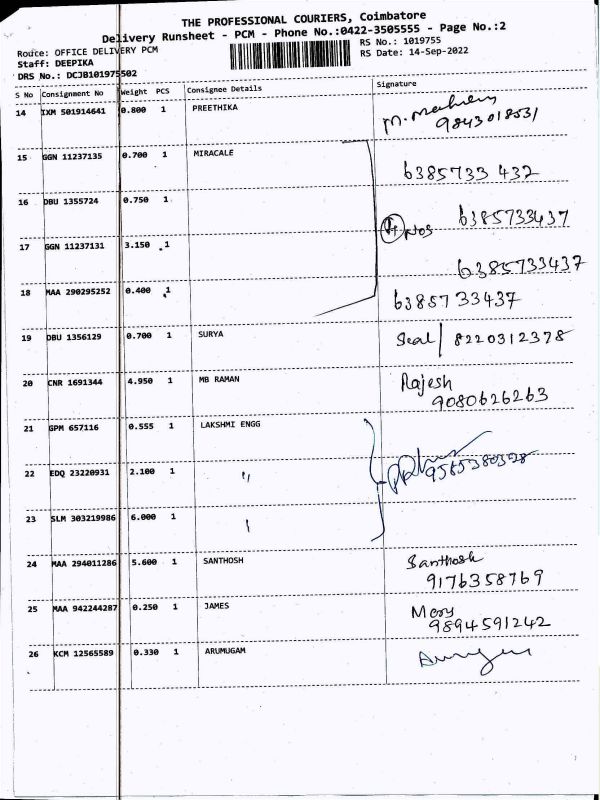 THE PROFESSIONAL COURIERS, Coimbatore
Delivery Runsheet - PCM - Phone No.:0422-3505555 - Page No.:2
Route: OFFICE DELIVERY PCM
RS No.: 1019755
Staff: DEEPIKA
RS Date: 14-Sep-2022
DRS No.: DCJB101975502
S No Consignment No Weight PCS Consignee Details Signature
14 IXM 501914641 0.800 1 PREETHIKA
9843018531
15 GGN 11237135 0.700 1 MIRACALE
6385733 437
16 DBU 1355724 0.750 1
6385733437
17 GGN 11237131 3.150 1
6385733437
18 MAA 290295252 0.400 1
6385733437
19 DBU 1356129 0.700 1 SURYA Seal/8220312378
20 CNR 1691344 4.950 1 MB RAMAN Rajesh
9080626263
21 GPM 657116 0.555 1 LAKSHMI ENGG
22 EDQ 23220931 2.100 1 "
23 SLM 303219986 6.000 1
24 MAA 294011286 5.600 1 SANTHOSH Santhosh
9176358769
25 MAA 942244287 0.250 1 JAMES Mary
9894591242
26 KCM 12565589 0.330 1 ARUMUGAM